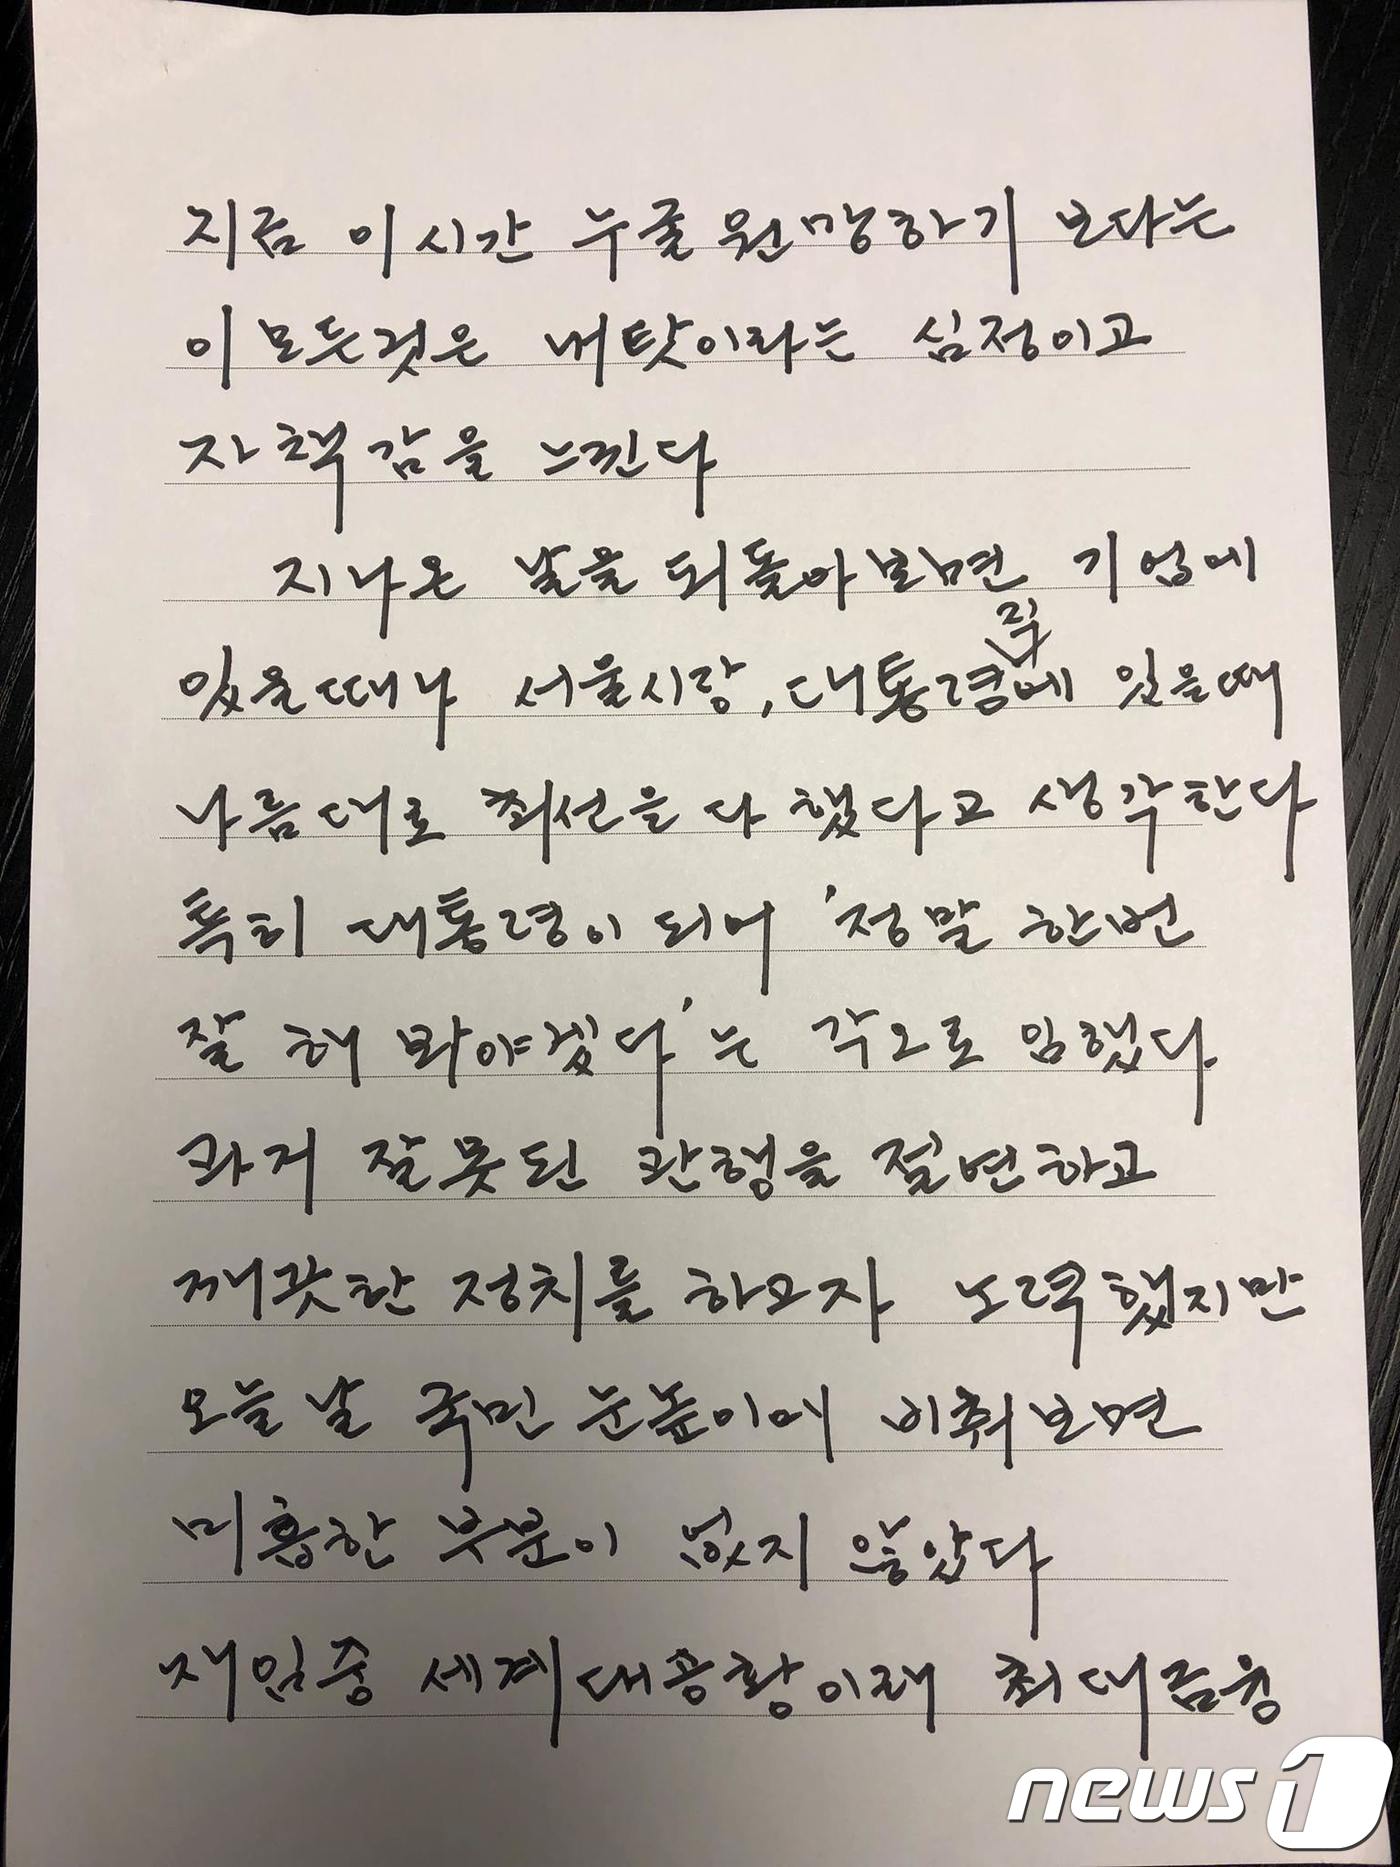 지금 이시간 누굴 원망하기 보다는
이 모든것은 내탓이라는 심정이고
자책감을 느낀다
지나온 날을 되돌아보면 기업에
있을때나 서울시장, 대통령직에 있을때
나름대로 최선을 다 했다고 생각한다
특히 대통령이 되어 '정말 한번
잘 해 봐야겠다'는 각오로 임했다
과거 잘못된 관행을 절연하고
깨끗한 정치를 하고자 노력했지만
오늘날 국민 눈높이에 비춰보면
미흡한 부분이 없지 않았다
재임중 세계대공황이래 최대금융
news1